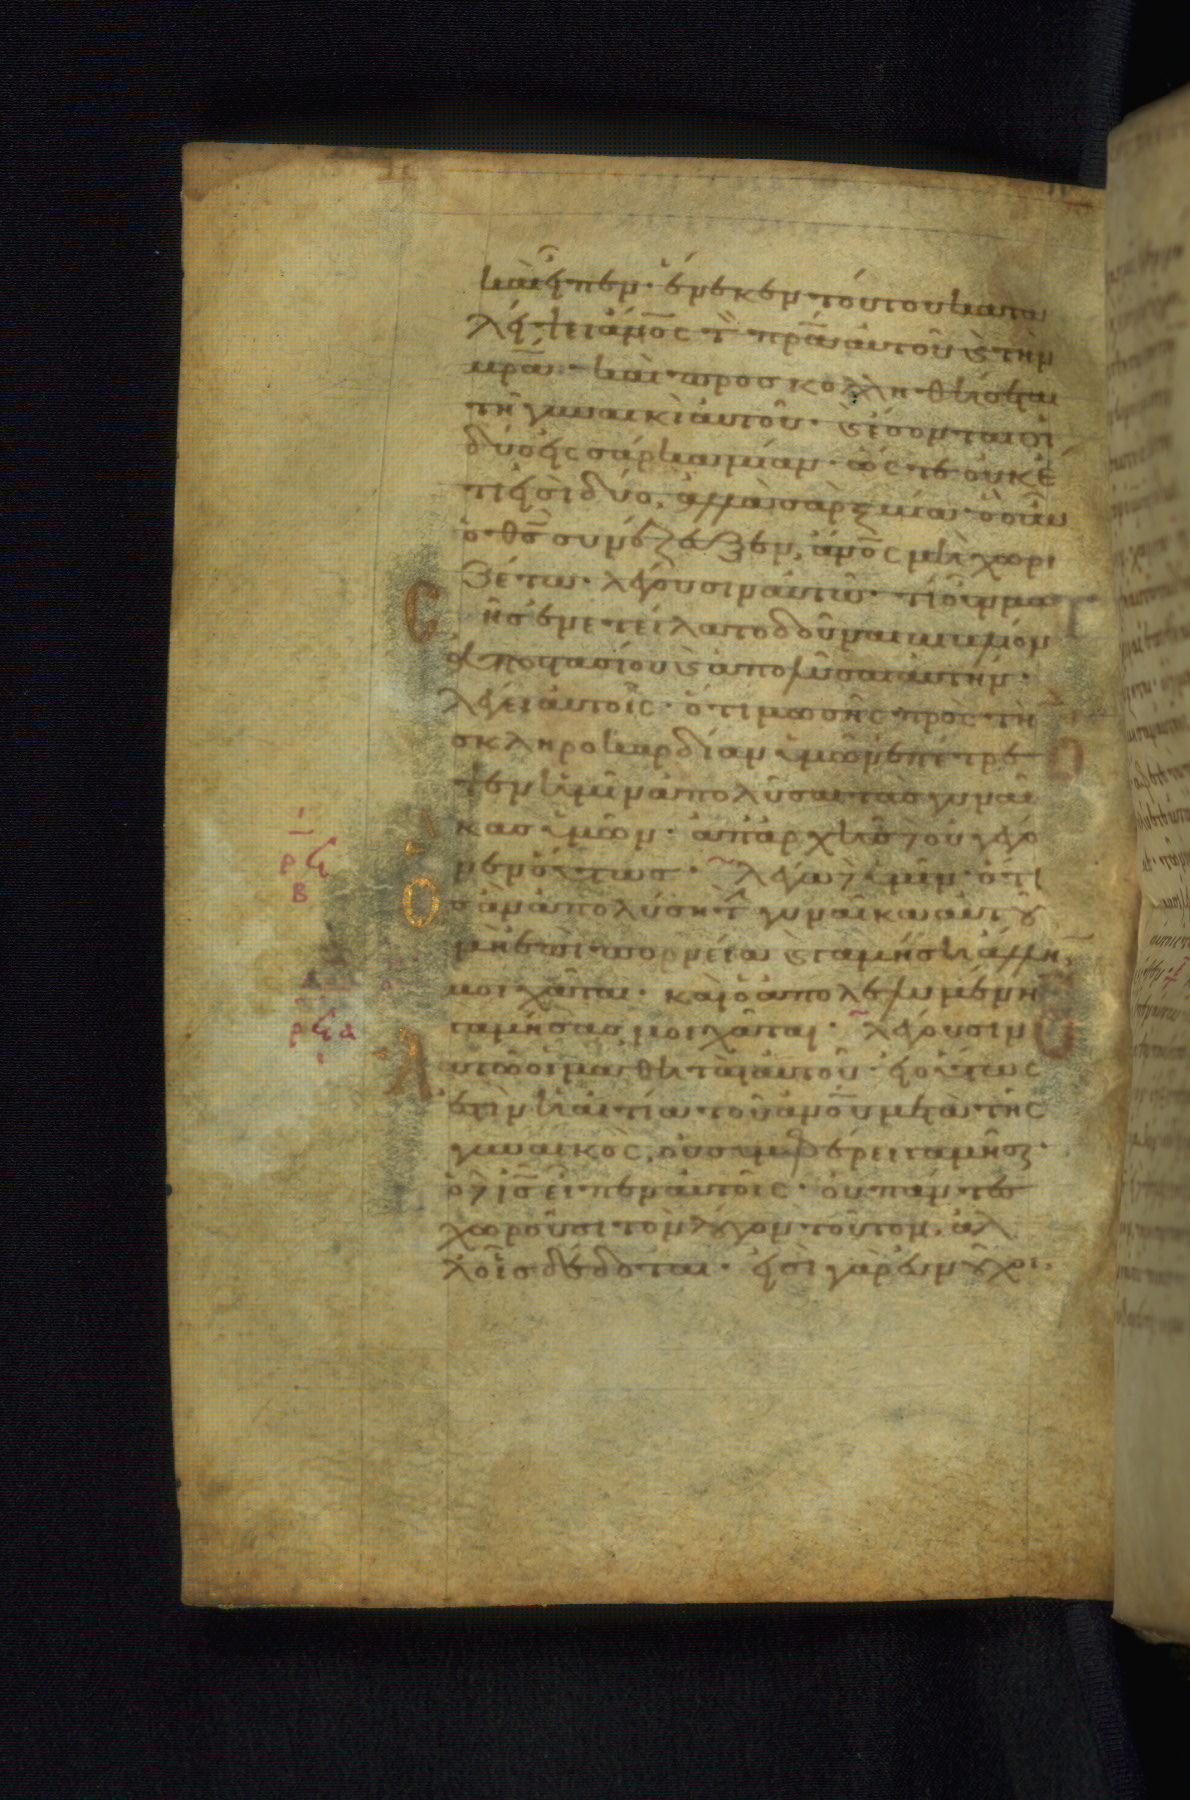 καὶ εἶπεν· ἕνεκεν τούτου κατα
λείψει ἄνο̅ς τ̀ πρ̅α αὐτοῦ ϗ τὴν
μρ̅α· καὶ προσκολληθήσεται
τῆ γυναικὶ αὐτοῦ· ϗ ἔσονται οἱ
δύο εἰς σάρκα μίαν· ὥς τε οὐκέ
τι εἰσὶ δύο, ἀλλὰ σὰρξ μία· ὃ οὖν
ὁ θς̅ συνέζευξεν, ἄνο̅ς μὴ χωρι
ζέτω· λέγουσιν αὐτῶ· τί οὖν μω
σῆς ἐνετείλατο δοῦναι βιβλίον
ἀποστασίου ϗ ἀπολῦσαι αὐτήν·
λέγει αὐτοῖς· ὅτι μωσῆς πρὸς τὴ
σκληροκαρδίαν ὑμῶν ἐπέτρε
ψεν ὑμῖν ἀπολῦσαι τὰς γυναῖ
κας ὑμῶν· ἀπ ἀρχῆς δ̀ οὐ γέγο
νεν οὕτως· λέγω δ̀ ὑμῖν ὅτι
ὃς ἂν ἀπολύση τ̀ γυναῖκα αὐτου
μὴ ἐπὶ πορνεία ϗ γαμήση ἄλλην,
μοιχᾶται· καὶ ὁ ἀπολελυμένην
γαμήσας, μοιχᾶται· λέγουσιν
αὐτῶ οἱ μαθηταὶ αὐτοῦ· εἰ οὕτως
ἐστὶν ἡ αἰτία τοῦ ἀνο̅υ μετὰ τῆς
γυναικὸς, οὐ συμφέρει γαμῆσαι·
ὁ δ̀ ις̅ εἶπεν αὐτοῖς· οὐ πάντες
χωροῦσι τὸν λόγον τοῦτον, ἀλ
λ οἷς δέδοται· εἰσὶ γὰρ εὐνουχοι.
ρϟ
β
ρϟα
ι